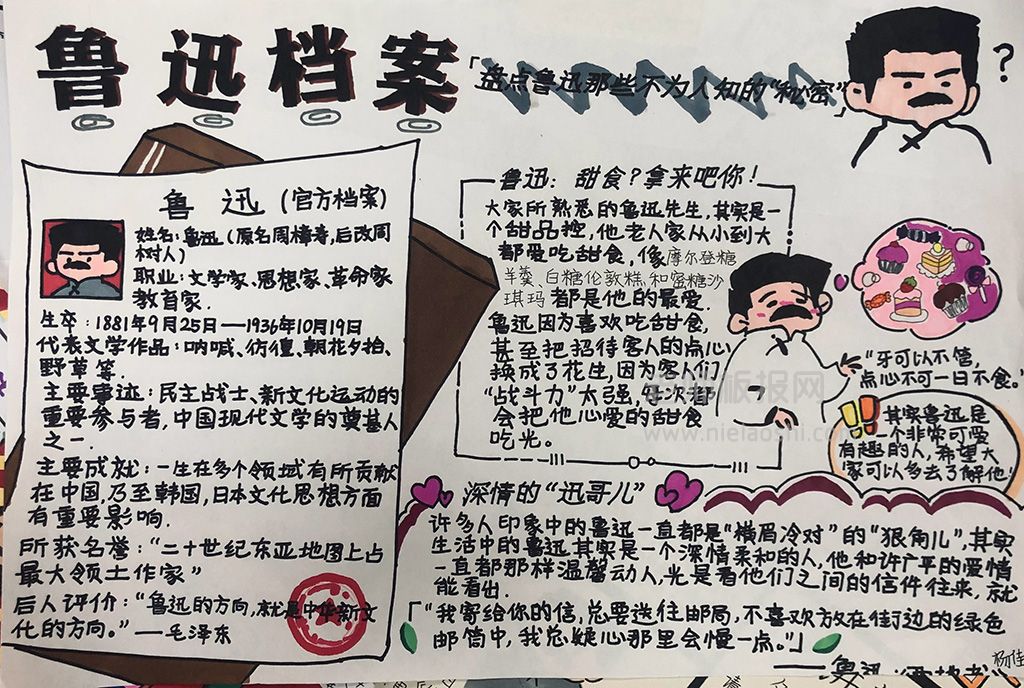 鲁迅档案
「盘点鲁迅那些不为人知的“秘密”」
?
鲁迅(官方档案)
姓名:鲁迅(原名周樟寿,后改周
树人)
职业:文学家、思想家、革命家
教育家.
生卒:1881年9月25日—1936年10月19日
代表文学作品:呐喊、彷徨、朝花夕拾、
野草等.
主要事迹:民主战士、新文化运动的
重要参与者,中国现代文学的奠基人
之一.
主要成就:一生在多个领域有所贡献
在中国,乃至韩国,日本文化思想方面
有重要影响.
所获名誉:“二十世纪东亚地图上占
最大领土作家”
后人评价:“鲁迅的方向,就是中华新文
化的方向。”—毛泽东
鲁迅:甜食?拿来吧你!
大家所熟悉的鲁迅先生,其实是一
个甜品控,他老人家从小到大
都爱吃甜食,像摩尔登糖
羊羹、白糖伦敦糕、和蜜糖沙
琪玛都是他的最爱.
鲁迅因为喜欢吃甜食,
甚至把招待客人的点心
换成了花生,因为客人们
“战斗力”太强,每次都
会把他心爱的甜食
吃光。
“牙可以不管,
点心不可一日不食。”
其实鲁迅是
一个非常可爱
有趣的人,希望大
家可以多去了解他!
板报网
www.nielaoshi.com
深情的“迅哥儿”
许多人印象中的鲁迅一直都是“横眉冷对”的“狠角儿”,其实
生活中的鲁迅其实是一个深情柔和的人,他和许广平的爱情
一直都那样温馨动人,光是看他们之间的信件往来,就
能看出.
「“我寄给你的信,总要送往邮局,不喜欢放在街边的绿色
邮筒中,我总疑心那里会慢一点。”」
——鲁迅
杨佳